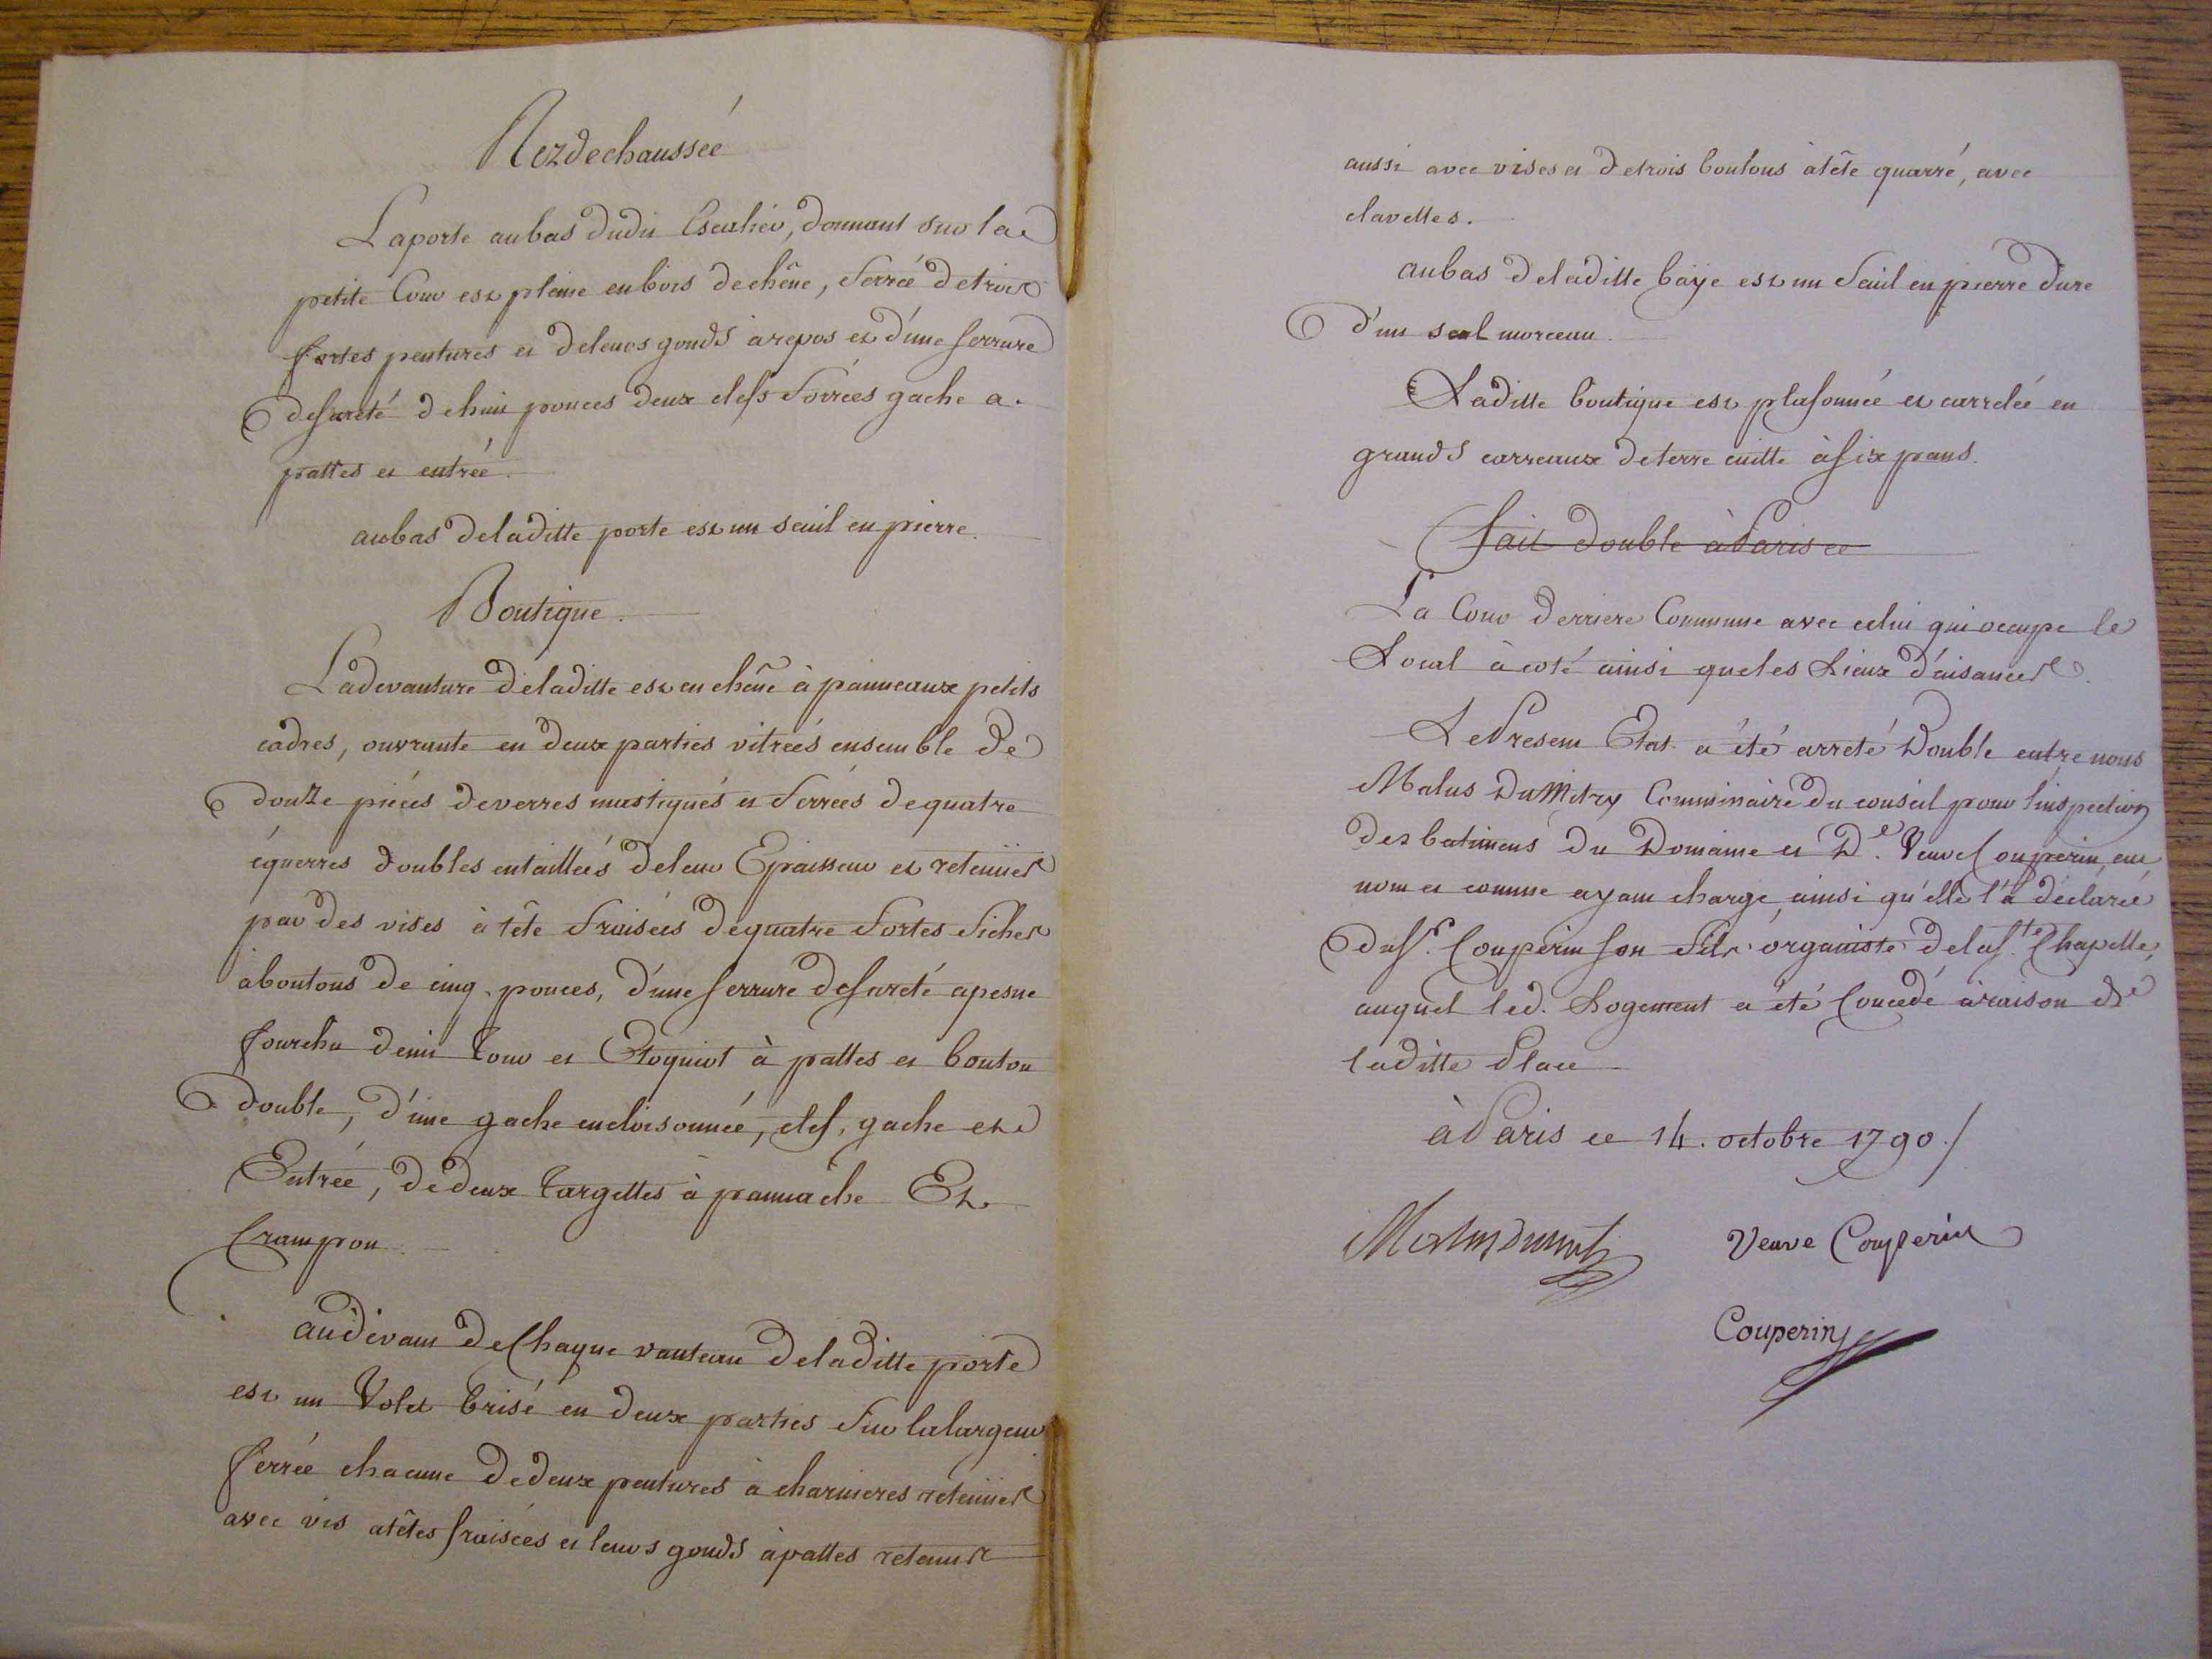 Rezdechaussée
Laporte aubas dudit Escalier, donnant sur la
petite Cour est pleine enbois dechêne, ferrée detrois
fortes pentures et deleurs gonds arepos et d'une serrure
desureté dehuit pouces deux clefs forrées gache a.
pattes et entrée.
aubas deladitte porte est un seuil en pierre.
Boutique.
Ladevanture deladitte est en chêne à panneaux petits
cadres, ouvrante en deux parties vitrées ensemble de
douze piéces deverres mastiqués et ferrées dequatre
équerres doubles entaillées deleur Epaisseur et retenües
par des vises à tête fraisées dequatre fortes fiches
àboutons de cinq pouces, d'une serrure desureté apesne
fourchu demi tour et Cloquiot à pattes et bouton
double, d'une gache encloisonnée, clef, gache et
Entrée, dedeux targettes à pannache Et
Crampon.
audevant deChaque vanteau deladitte porte
est un Volet brisé en deux parties sur lalargeur
ferrée chacune dedeux pentures à charnieres retenües
avec vis atêtes fraisées et leurs gonds àpattes retenus
aussi avec vises et detrois boulons atête quarré, avec
clavettes.
aubas deladitte baÿe est un seuil en pierre dure
d'un seul morceau.
Laditte boutique est plafonnée et carrelée en
grands carreaux deterre cuitte àsix pans.
fait double àParis ce
La Cour derriere Commune avec celui qui occupe le
Local àcoté ainsi queles Lieux d'aisances.
LePresent Etat a été arreté Double entre nous
Malus DuMitry Commissaire du conseil pour l'inspection
des batimens du Domaine et De. Veuve Couperin, au
nom et comme ayant charge, ainsi qu'elle l'a déclaréé
du Sr. Couperin son fils organiste delaSte. Chapelle,
auquel led. Logement a été Concedé àraison de
laditte Place
àParis ce 14. octobre 1790./
Malus Dumitry
Veuve Couperin
Couperin